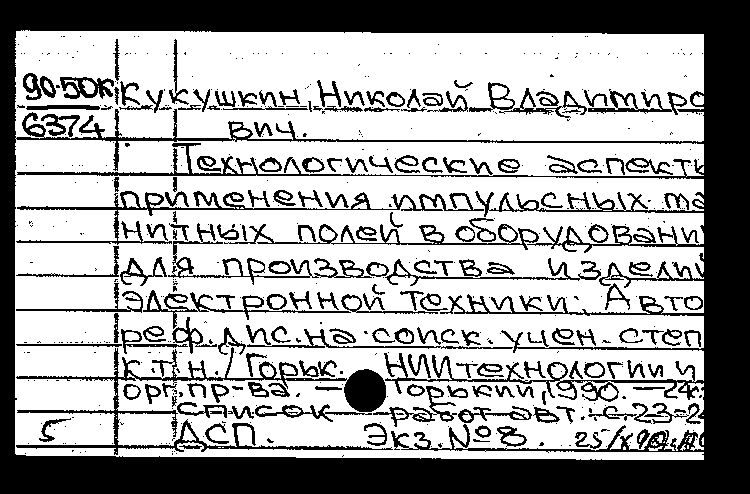 90-50К Кукушкин, Николай Владимиро
6374 вич.
Технологические аспекты
применения импульсных маг
нитных полей в оборудовани
для производства изделий
электронной техники: Авто
реф. дис. на соиск. учен. степ
к.т.н. / Горьк. НИИтехнологии и
орг. пр-ва. — Горький, 1990. — 24с
список работ авт.: с. 23-24
5 ДСП. Экз. № 8. 25/х 90